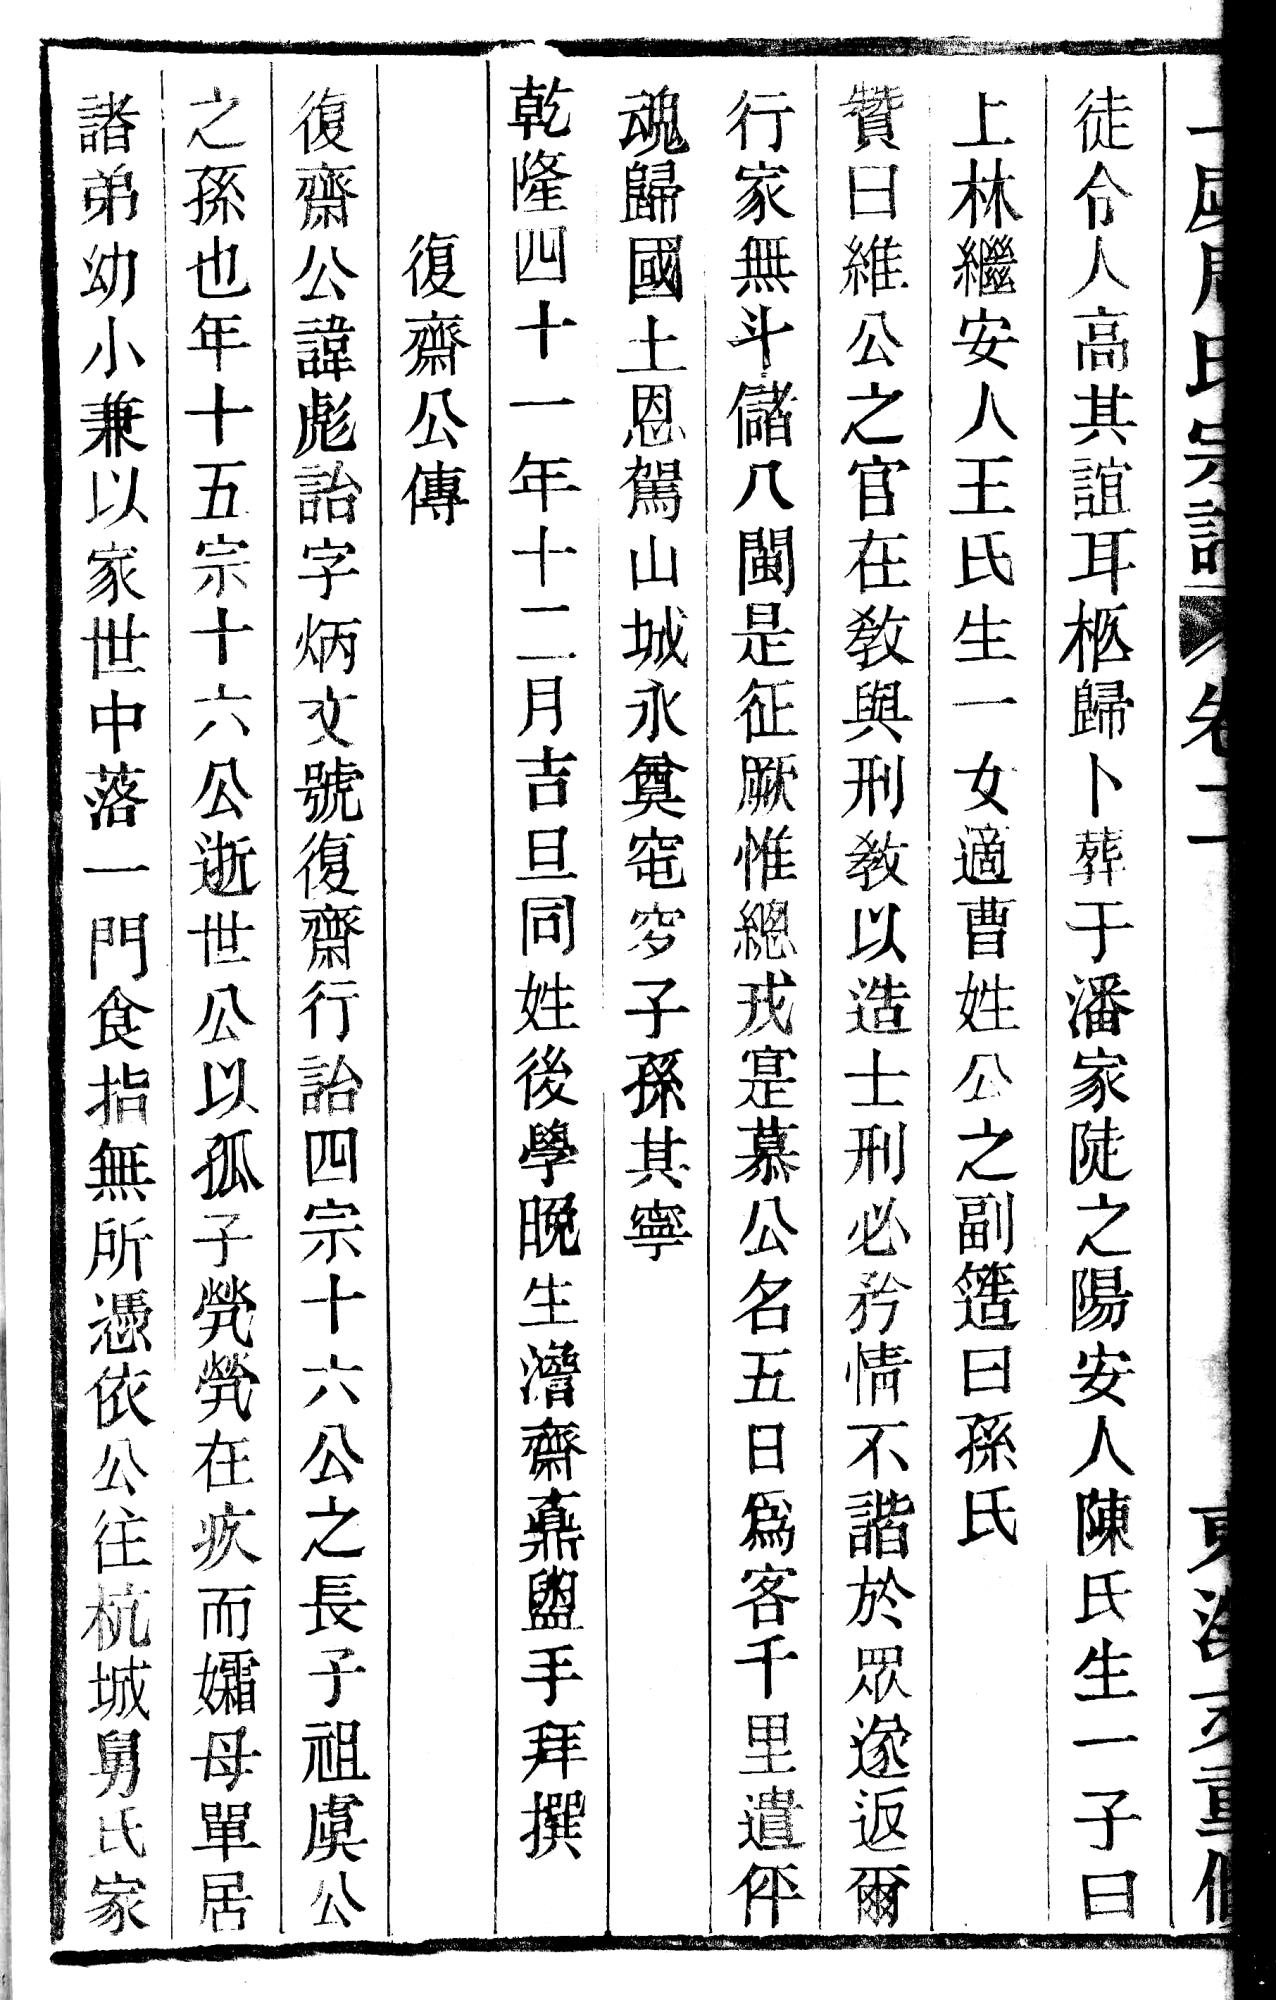 氏宗譜 卷二
徒令人高其誼耳柩歸卜葬于潘家陡之陽安人陳氏生一子曰
上林繼安人王氏生一女適曹姓公之副簉曰孫氏
贊曰維公之官在教與刑教以造士刑必矜情不諧於眾遂返爾
行家無斗儲八閩是征厥惟總戎寔慕公名五日爲客千里遣伻
魂歸國土恩駕山城永奠窀穸子孫其寧
乾隆四十一年十二月吉旦同姓後學晚生澹齋鼒盥手拜撰
復齋公傳
復齋公諱彪詒字炳文號復齋行詒四宗十六公之長子祖虞公
之孫也年十五宗十六公逝世公以孤子煢煢在疚而孀母單居
諸弟幼小兼以家世中落一門食指無所憑依公往杭城舅氏家